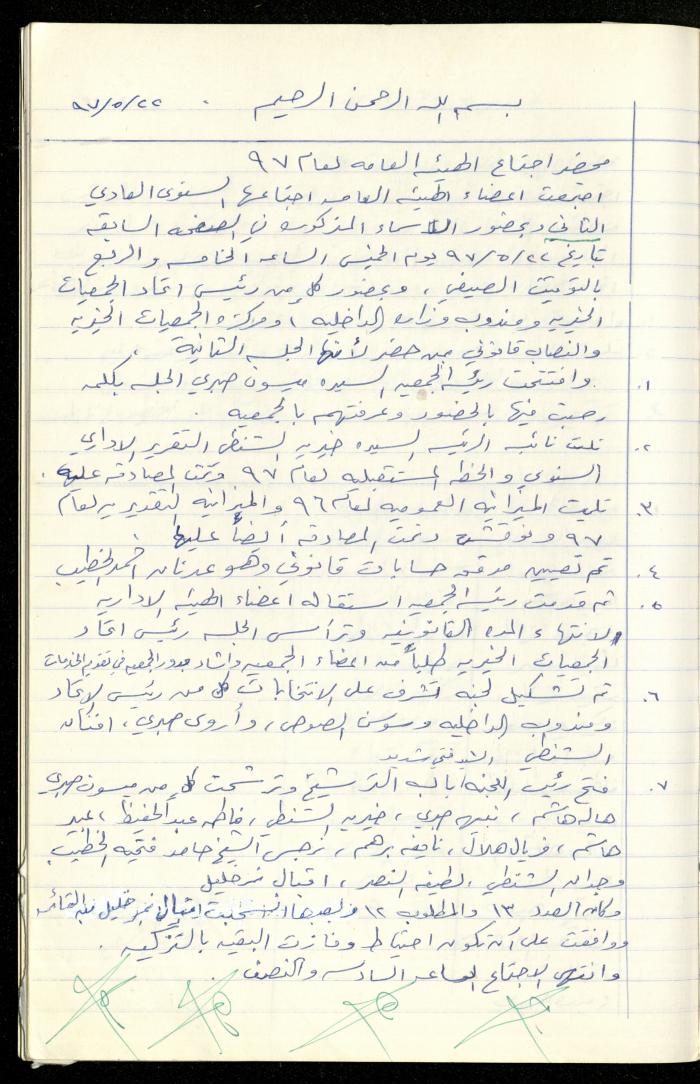 بسم الله الرحمن الرحيم
٩٧/٥/٢٢
محضر اجتماع الهيئه العامه لعام ٩٧
اجتمعت اعضاء الهيئه العامه اجتماعها السنوي العادي
الثاني وبحضور الاسماء المذكوره في الصفحه السابقه
بتاريخ ٩٧/٥/٢٢ يوم الخميس الساعه الخامسه والربع
بالتوقيت الصيفي، وبحضور كل من رئيس اتحاد الجمعيات
الخيريه ومندوب وزاره الداخليه ومركزه الجمعيات الخيريه
والنصاب قانوني بمن حضر لأنها الجلسه الثانية.
١. وافتتحت رئيسه الجمعيه السيده ميسون صبري الجلسه بكلمه
رحبت فيها بالحضور وعرفتهم بالجمعيه.
٢. تلت نائبه الرئيسه السيده خيريه الشنطي التقرير الاداري
السنوي والخطه المستقبليه لعام ٩٧ وتمت المصادقه عليه.
٣. تليت الميزانيه العموميه لعام ٩٦ والميزانيه التقديريه لعام
٩٧ ونوقشت وتمت المصادقه أيضاً عليها.
٤. تم تعيين مدقق حسابات قانوني وهو عدنان احمد الخطيب
٥. ثم قدمت رئيسه الجمعيه استقاله اعضاء الهيئه الاداريه
لانتهاء المده القانونيه وترأس الجلسه رئيس اتحاد
الجمعيات الخيريه طلباً من اعضاء الجمعيه وأشاد بدور الجمعيه في تقديم الخدمات
٦. تم تشكيل لجنه تشرف على الانتخابات كل من رئيس الاتحاد
ومندوب الداخليه وسوسن الصوص، وأروى صبري، افنان
الشنطي
٧. فتح رئيس اللجنه باب الترشيح وترشحت كل من ميسون صبري
هاله هاشم، صبري، خيريه الشنطي، فاطمه عبدالحفيظ، عبير
هاشم، فريال هلال، نايفه برهم، نرجس الشيخ حامد فتحيه الخطيب
وجدان الشنطي، لطيفه النصر، اقبال نمر خليل
وكان العدد ١٣ والمطلوب ١٢ وبعدها انسحبت اقبال نمر خليل من القائمه
ووافقت على أن تكون احتياط وفازت البقيه بالتزكيه.
وانتهى الاجتماع الساعه السادسه والنصف.